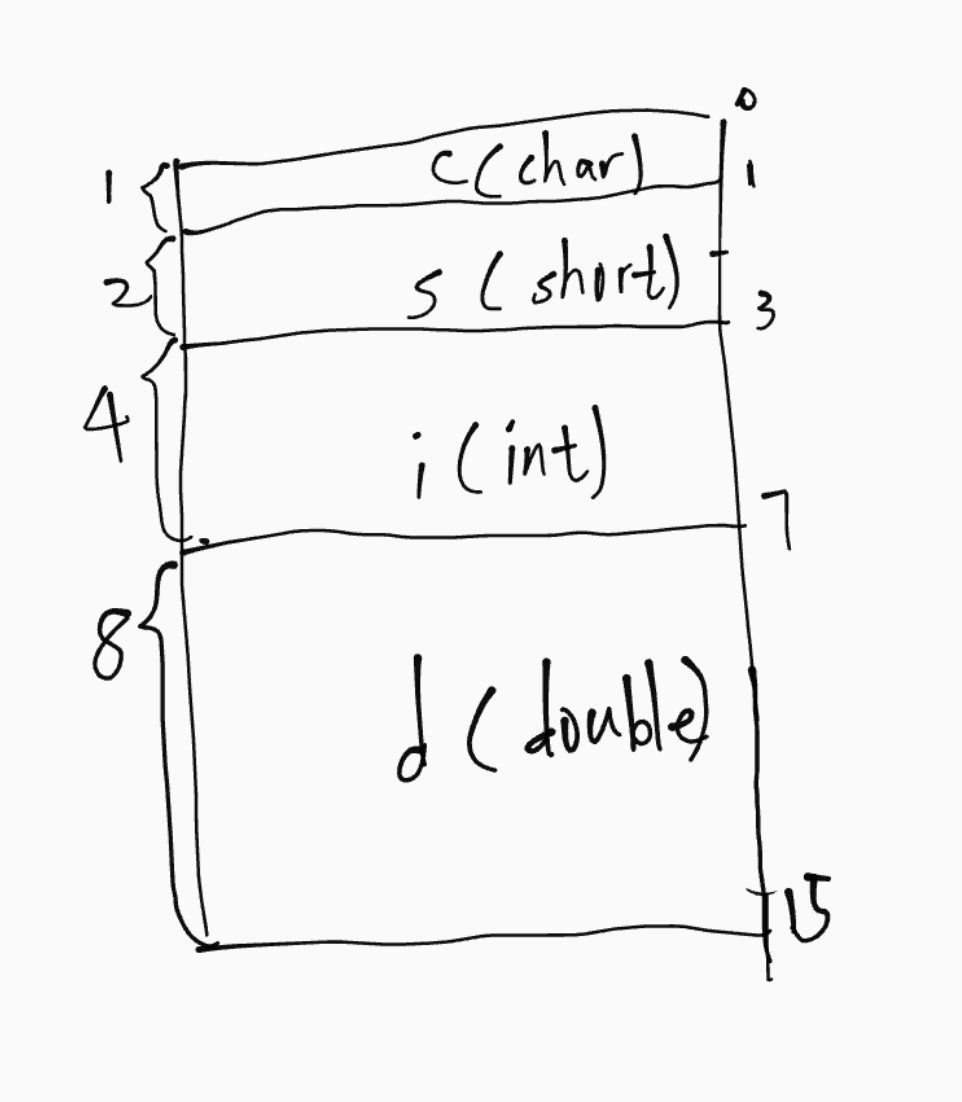 0
1 c(char) 1
2 s (short) 3
4 i (int) 7
8 d (double) 15